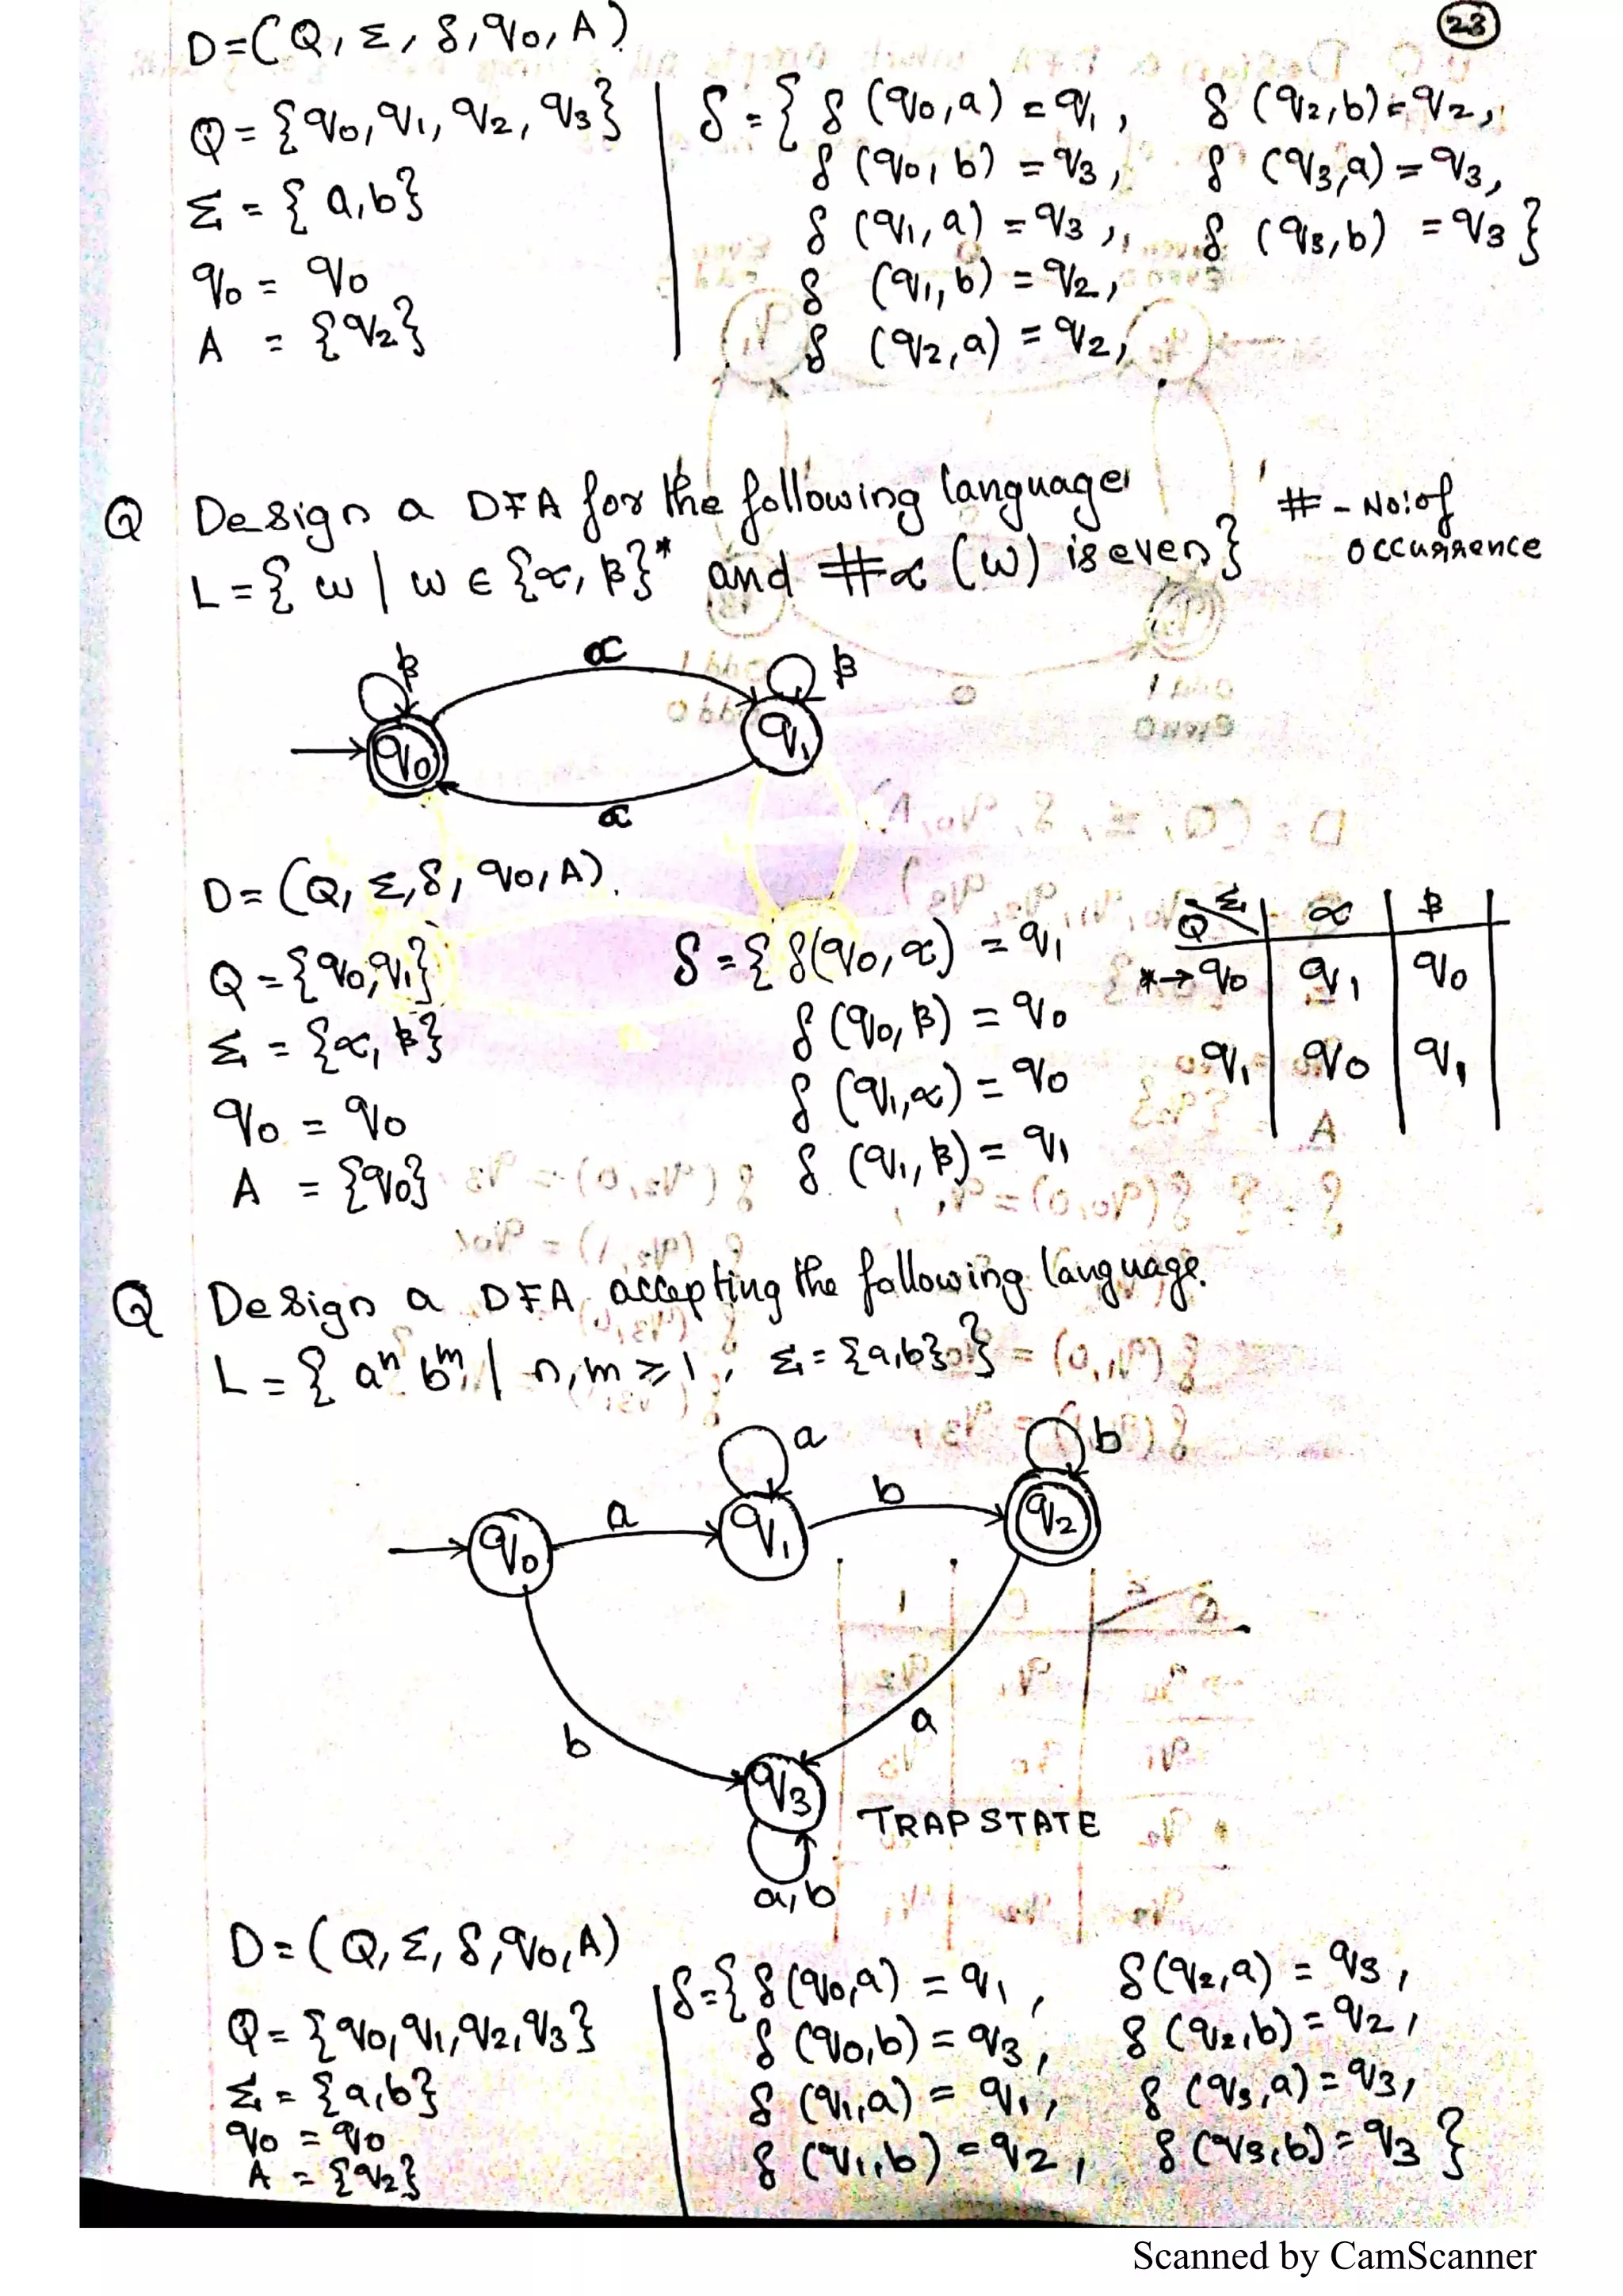 23
D=(Q, Σ, δ, q0, A)
Q = {q0, q1, q2, q3}
Σ = {a,b}
q0 = q0
A = {q2}
δ = { δ (q0,a) = q1, δ (q2,b) = q2,
δ (q0, b) = q3, δ (q3,a) = q3,
δ (q1,a) = q3, δ (q3,b) = q3 }
δ (q1,b) = q2,
δ (q2,a) = q2,
Q Design a DFA for the following language
L = { w | w ∈ {α, β}* and #α (w) is even}
# - No: of
occurrence
β
α
β
q0
q1
α
D = (Q, Σ, δ, q0, A).
Q = {q0,q1}
Σ = {α, β}
q0 = q0
A = {q0}
δ = { δ(q0, α) = q1
δ (q0, β) = q0
δ (q1,α) = q0
δ (q1, β) = q1
Q Σ α β
*→ q0 q1 q0
q1 q0 q1
Q Design a DFA accepting the following language.
L = { aⁿ bᵐ | n,m ≥ 1, Σ = {a,b} }
a
b
a
b
q0
q1
q2
b
a
q3
TRAP STATE
a,b
D = (Q, Σ, δ, q0, A)
Q = {q0, q1, q2, q3}
Σ = {a,b}
q0 = q0
A = {q2}
δ = { δ(q0,a) = q1, δ(q2,a) = q3,
δ (q0,b) = q3, δ (q2,b) = q2,
δ (q1,a) = q1, δ (q3,a) = q3,
δ (q1,b) = q2, δ(q3,b) = q3 }
Scanned by CamScanner